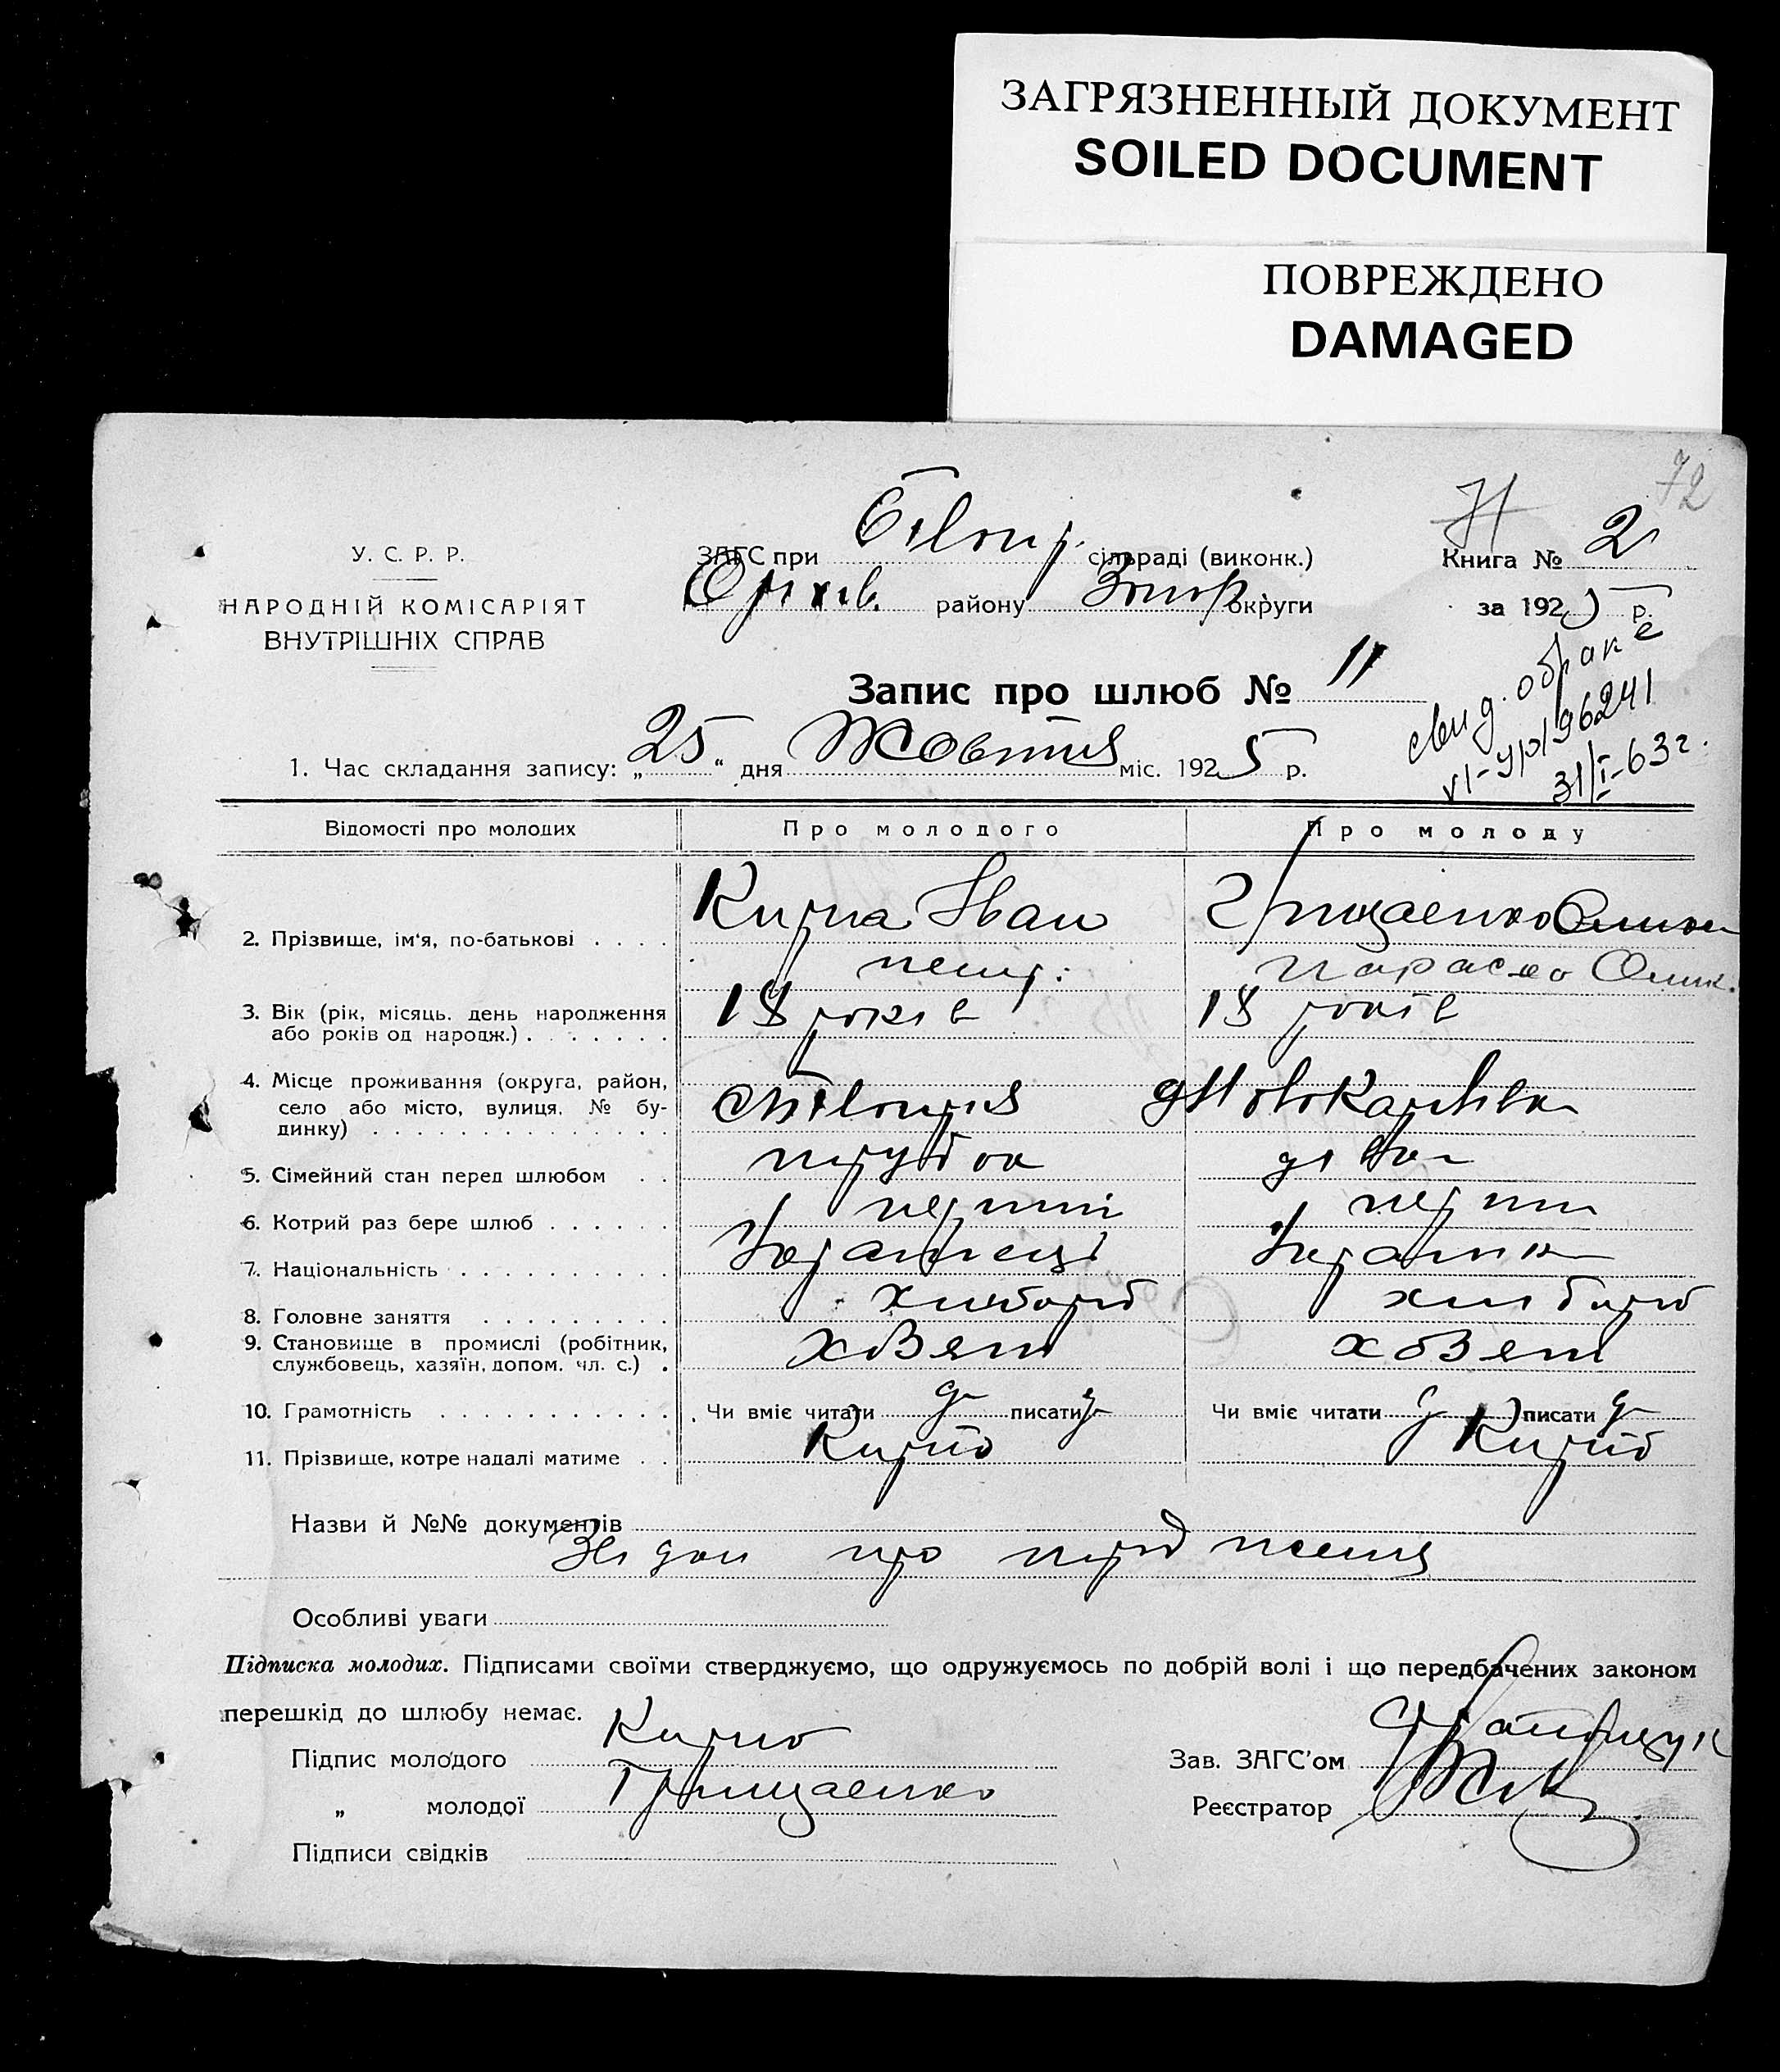 ЗАГРЯЗНЕННЫЙ ДОКУМЕНТ
SOILED DOCUMENT
ПОВРЕЖДЕНО
DAMAGED
72
У. С. Р. Р.
НАРОДНІЙ КОМІСАРІЯТ
ВНУТРІШНІХ СПРАВ
ЗАГС при сільраді (виконк.)
Оріхів. району Запор округи
Книга № 2
за 1925 р.
Запис про шлюб № 11
свид. о браке
VI-УР 196241
31/I-63 г.
1. Час складання запису: „25“ дня Жовтня міс. 1925 р.
Відомості про молодих Про молодого Про молоду
2. Прізвище, ім'я, по-батькові . . . . Кирпа Іван Грищаенко
Параско
3. Вік (рік, місяць, день народження 18 років 18 років
або років од народж.) . . . . . . .
4. Місце проживання (округа, район,
село або місто, вулиця, № бу- Новокарлівка
динку) . . . . . . . . . . . . . .
5. Сімейний стан перед шлюбом . . парубок дівка
6. Котрий раз бере шлюб . . . . . . перший перши
7. Національність . . . . . . . . . . .
8. Головне заняття . . . . . . . . . хлібороб хлібороб
9. Становище в промислі (робітник,
службовець, хазяїн, допом. чл. с.) .
10. Грамотність . . . . . . . . . . . Чи вміє читати писати Чи вміє читати писати
11. Прізвище, котре надалі матиме . . Кирпо Кирпо
Назви й №№ документів
про
Особливі уваги
Підписка молодих. Підписами своїми стверджуємо, що одружуємось по добрій волі і що передбачених законом
перешкід до шлюбу немає.
Підпис молодого Кирпо
Зав. ЗАГС'ом
„ молодої Грищаенко
Реєстратор
Підписи свідків